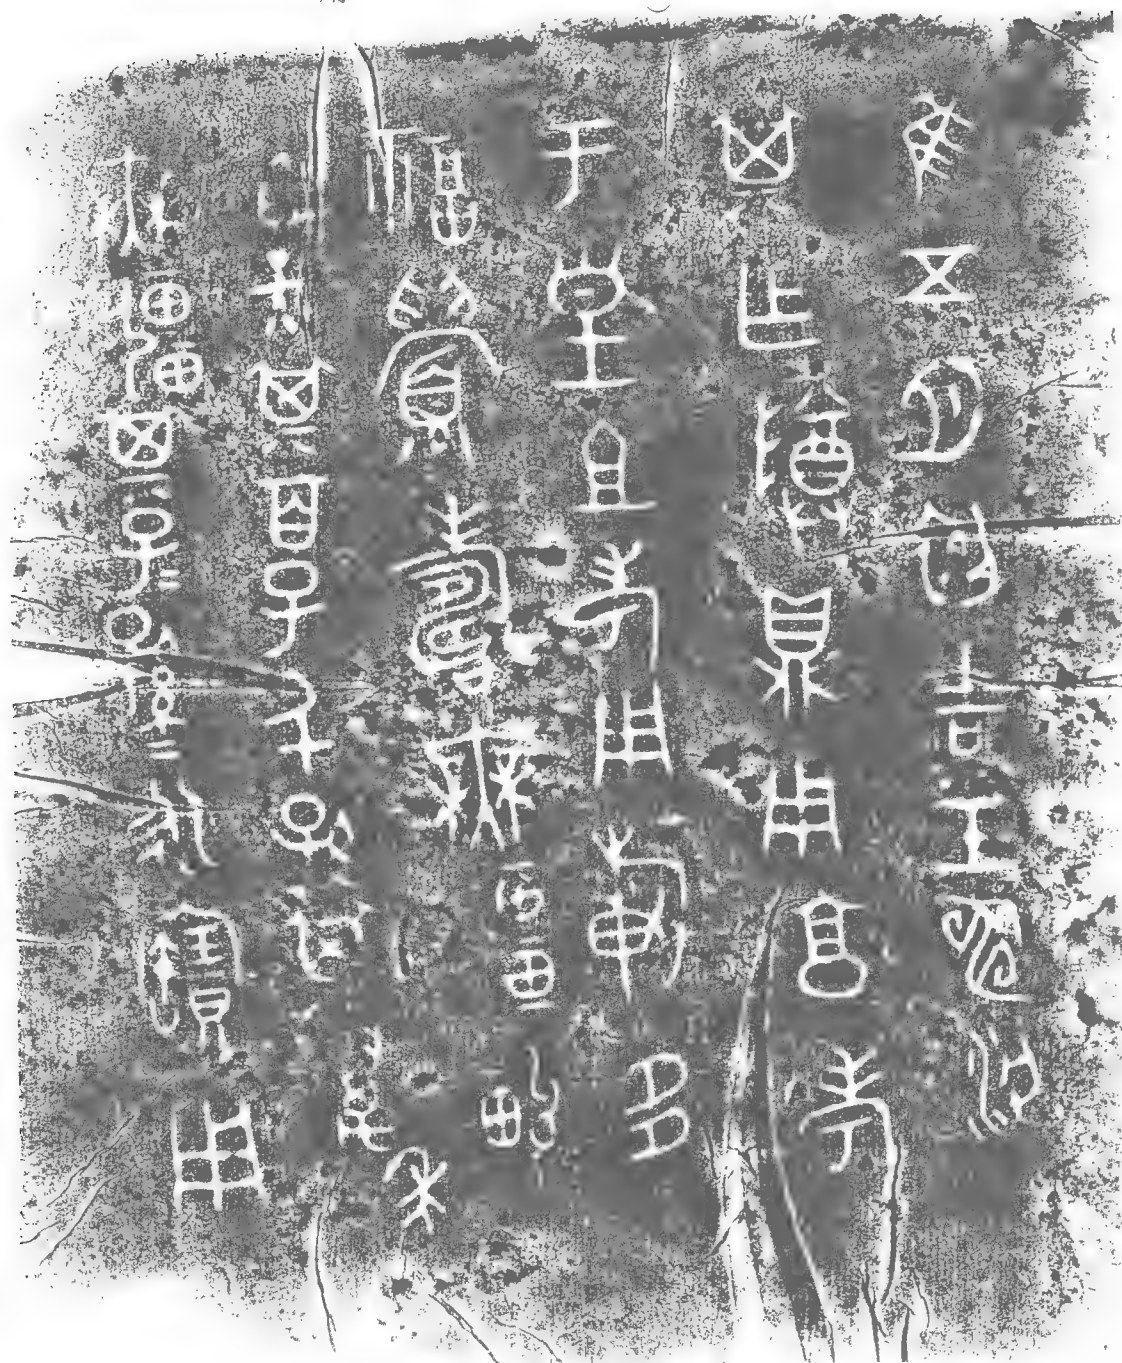 隹五月初吉壬申梁
其乍尊鼎用享考
于皇且考用旂多
福眉壽無疆畯
臣天其百子千孫其萬年
無疆其子=孫=永寶用